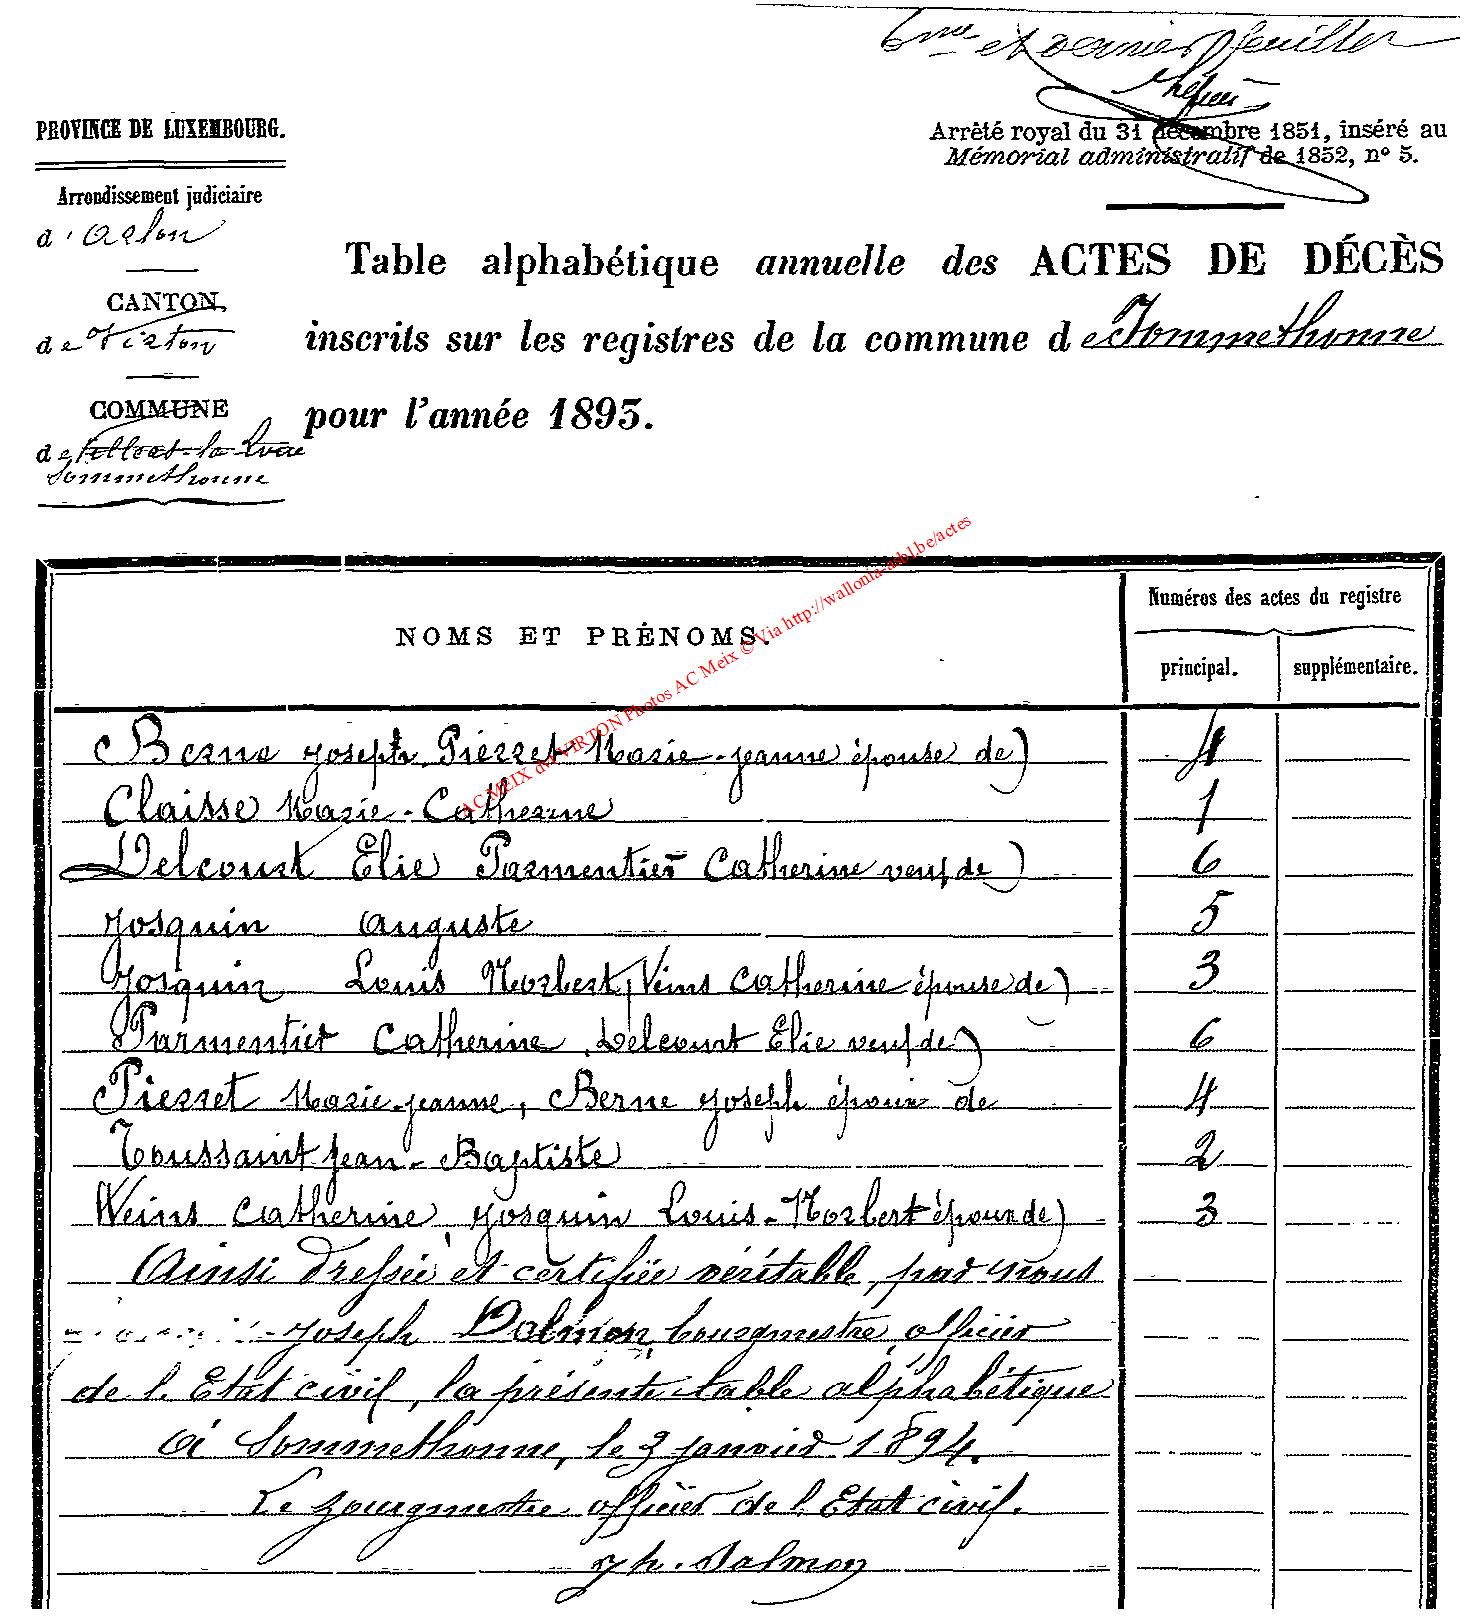 6me et dernier feuillet
PROVINCE DE LUXEMBOURG.
Arrêté royal du 31 décembre 1851, inséré au
Mémorial administratif de 1852, n° 5.
Arrondissement judiciaire
d'Arlon
CANTON
de Virton
COMMUNE
de Villers-la-Loue
Sommethonne
Table alphabétique annuelle des ACTES DE DÉCÈS
inscrits sur les registres de la commune de Sommethonne
pour l'année 1893.
NOMS ET PRÉNOMS.
Numéros des actes du registre
principal. supplémentaire.
AC MEIX dvt VIRTON Photos AC Meix © Via http://wallonia-asbl.be/actes
Berne Joseph Pierret Marie-Jeanne épouse de) 4
Claisse Marie-Catherine 1
Delcourt Elie Parmentier Catherine veuf de) 6
Josquin Auguste 5
Josquin Louis Norbert, Weins Catherine épouse de) 3
Parmentier Catherine, Delcourt Elie veuf de) 6
Pierret Marie-Jeanne, Berne Joseph époux de 4
Toussaint Jean-Baptiste 2
Weins Catherine, Josquin Louis-Norbert époux de) 3
Ainsi dressée et certifiée véritable, par nous
Joseph Dalmon, bourgmestre, officier
de l'Etat civil, la présente table alphabétique
A Sommethonne, le 3 janvier 1894.
Le bourgmestre officier de l'Etat civil.
Jh. Dalmon